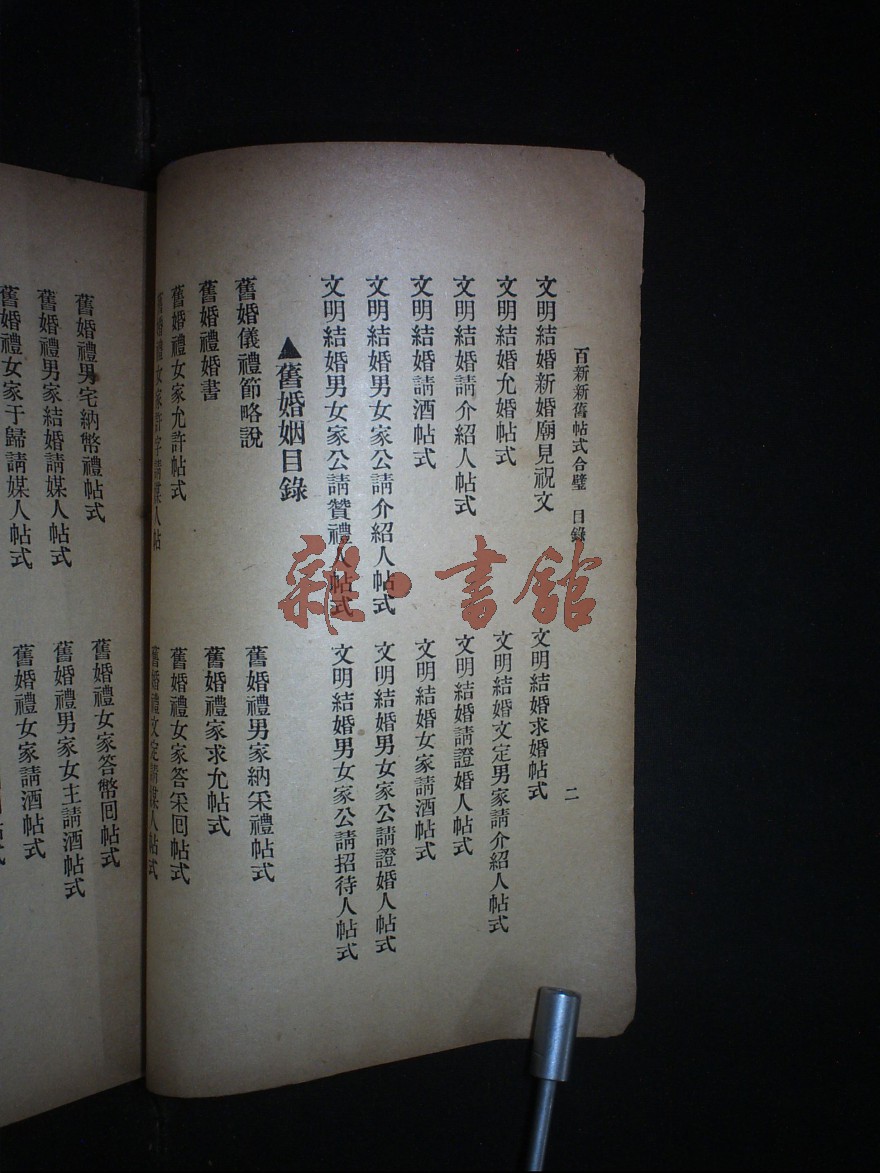 百新新舊帖式合璧 目錄 二
文明結婚新婚廟見祝文
文明結婚求婚帖式
文明結婚允婚帖式
文明結婚文定男家請介紹人帖式
文明結婚請介紹人帖式
文明結婚請證婚人帖式
文明結婚請酒帖式
文明結婚女家請酒帖式
文明結婚男女家公請介紹人帖式
文明結婚男女家公請證婚人帖式
文明結婚男女家公請贊禮人帖式
文明結婚男女家公請招待人帖式
▲舊婚姻目錄
舊婚儀禮節略說
舊婚禮男家納采禮帖式
舊婚禮婚書
舊婚禮家求允帖式
舊婚禮女家允許帖式
舊婚禮女家答采囘帖式
舊婚禮女家許字請媒人帖
舊婚禮文定請媒人帖式
舊婚禮男宅納幣禮帖式
舊婚禮女家答幣囘帖式
舊婚禮男家結婚請媒人帖式
舊婚禮男家女主請酒帖式
舊婚禮女家于歸請媒人帖式
舊婚禮女家請酒帖式
帖式
雜·書館